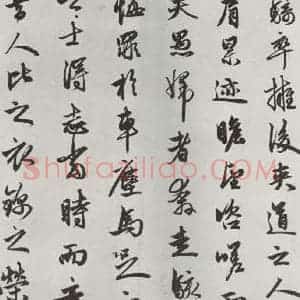 騎卒擁後夾道之人
肩累迹瞻望咨嗟而
夫愚婦者奔走駭
悔罪於車塵馬足之
之士得志當時而意
昔人比之衣錦之榮
Shufaziliao.com